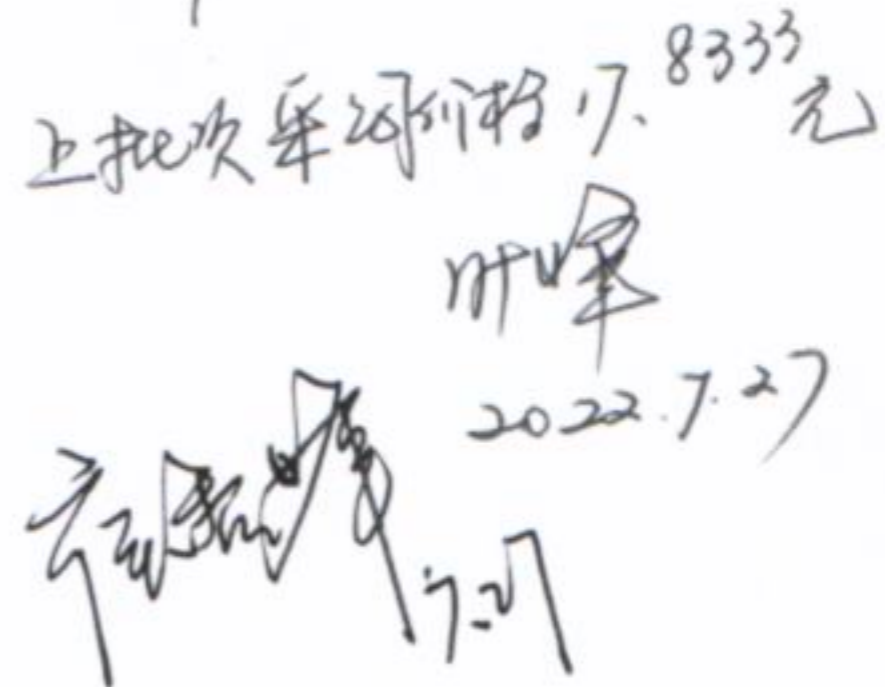 上批次采购价格17.8333元
叶峰
2022.7.27
7.27